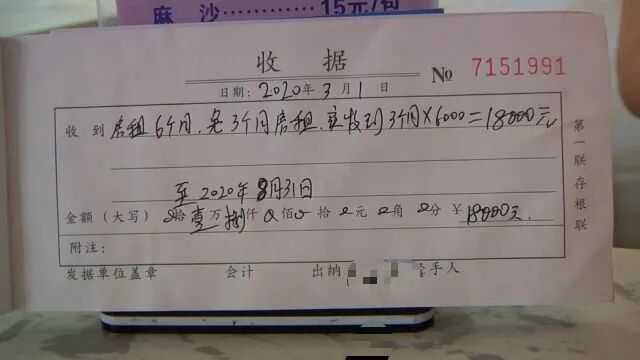 麻 沙…………15元/包
收 据
日期：2020年3月1日 № 7151991
收 到 房租6个月，免3个月房租，实收到3个月×6000=18000元
至2020年8月31日
金额（大写） 0拾壹万捌仟0佰0拾0元0角0分 ￥18000元
附注：
发据单位盖章 会计 出纳 经手人
第一联 存根联